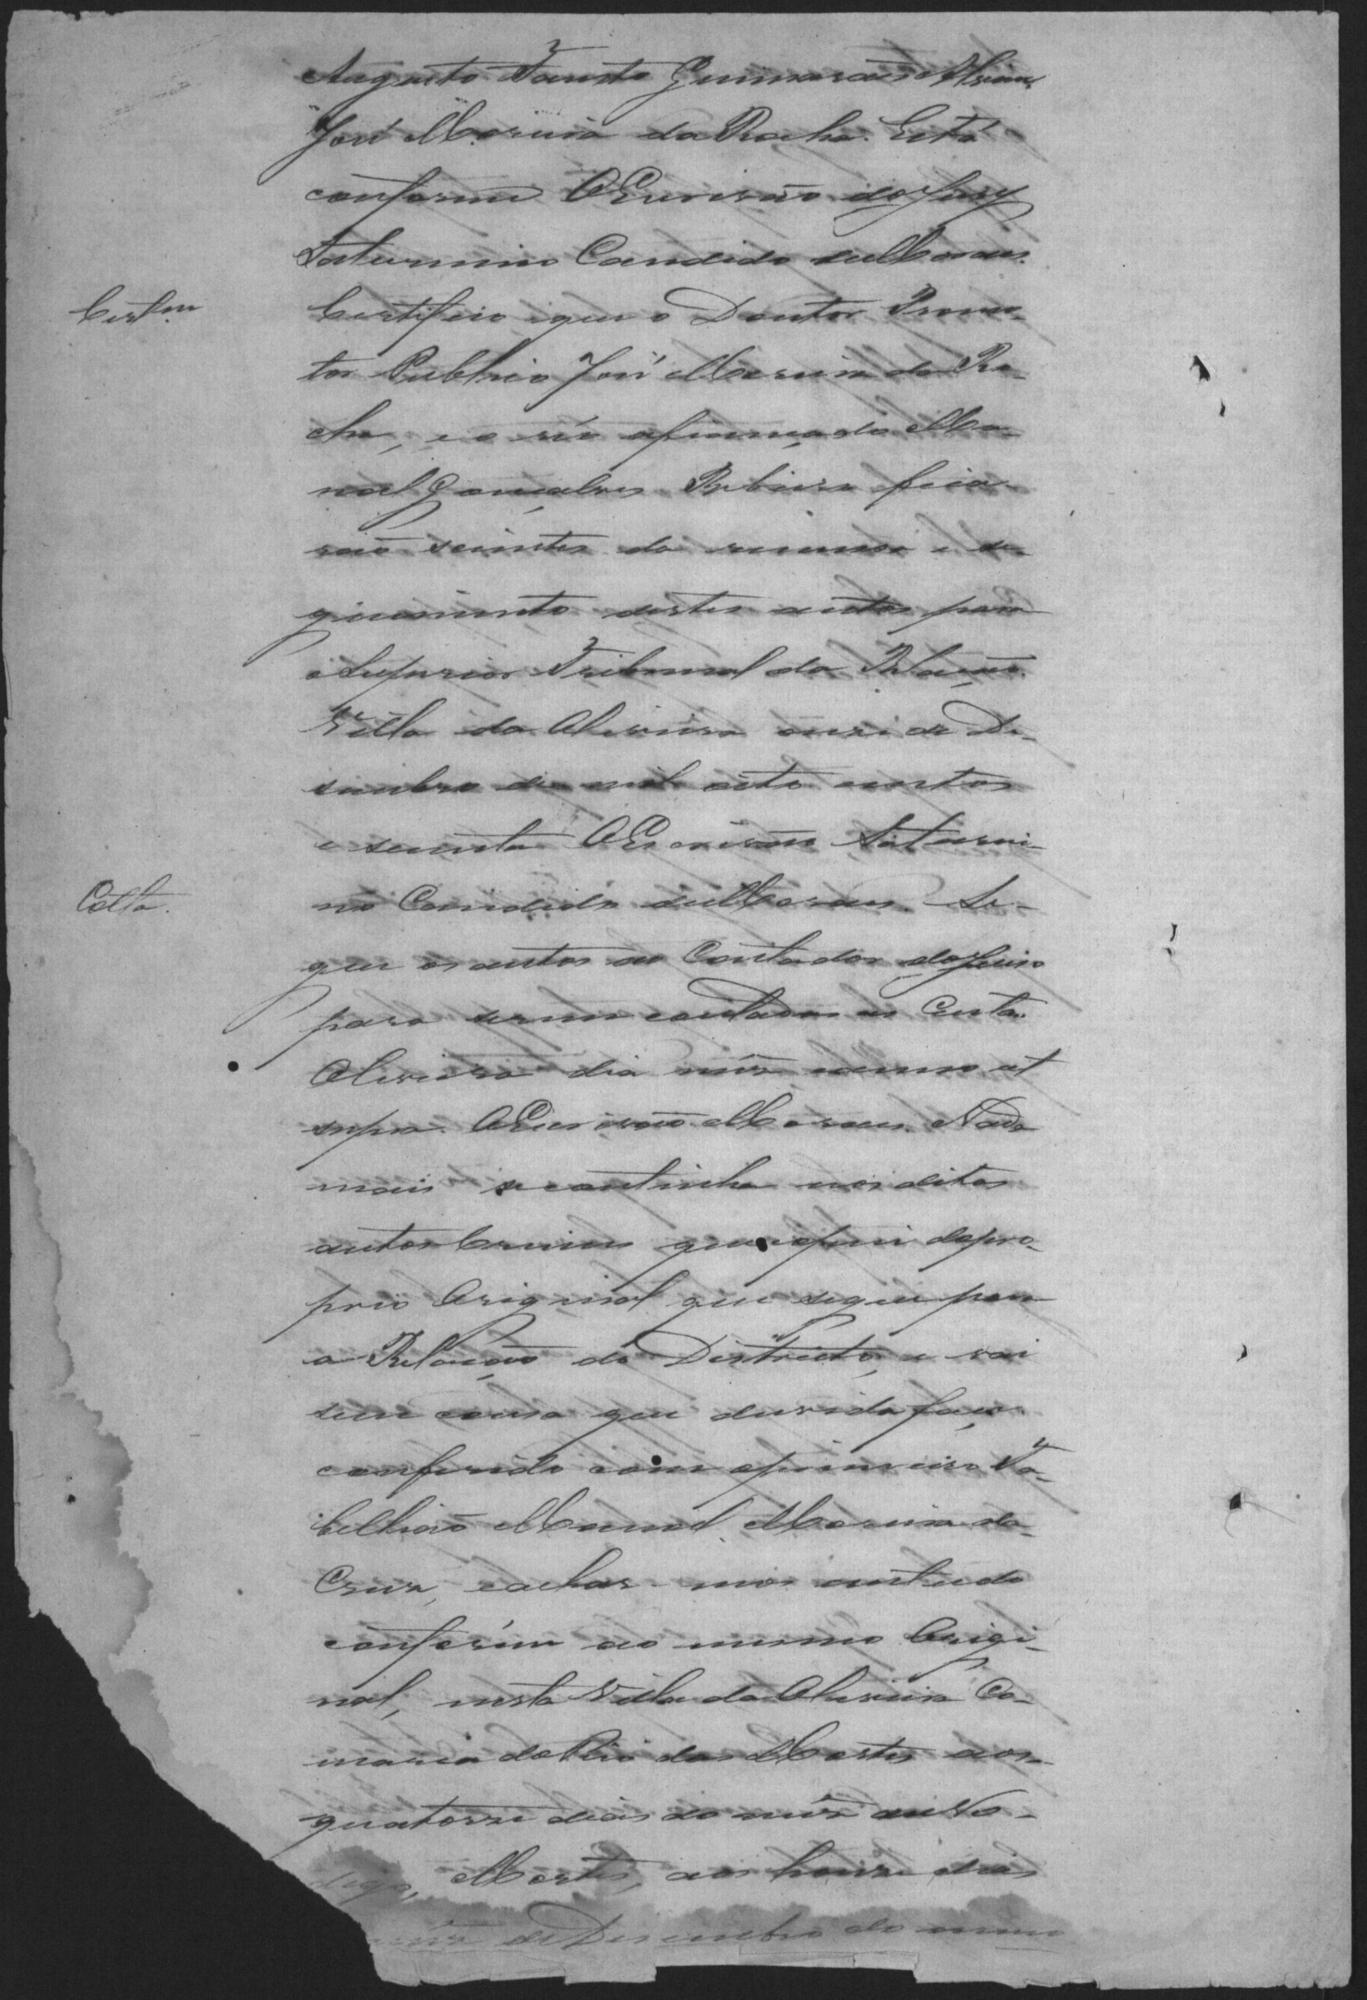 Augusto Fausto Guimarães Alvim
José Moreira da Rocha. Está
conforme O Escrivão do Jury
Saturnino Candido de Moraes.
Cert.am
Certifico que o Doutor Promo-
tor Publico José Moreira da Ro-
cha, e o réo afiançado Ma-
noel Gonçalves Rebeiro fica-
rão scientes da remessa e se-
guimento destes autos para
o Superior Tribunal da Relação.
Villa da Oliveira onze de De-
sembro de mil oito centos
e secenta O Escrivão Saturni-
no Candido de Moraes. Se-
Cotta.
guem os autos ao Contador do Juizo
para serem contadas as Custas.
Oliveira dia mês e anno ut
supra. O Escrivão Moraes. Nada
mais se continha nos ditos
autos Crimes que copiei do pro-
prio Original que segue para
a Relação do Districto, e vai
sem cousa que duvida faça
conferido com o primeiro Ta-
bellião Manoel Moreira da
Cruz, e achar-mos em tudo
conforme ao mesmo Origi-
nal, nesta Villa da Oliveira Co-
marca do Rio das Mortes aos
quatorze dias do mês de No-
digo, Mortes, aos honze dias
mês de Desembro do anno